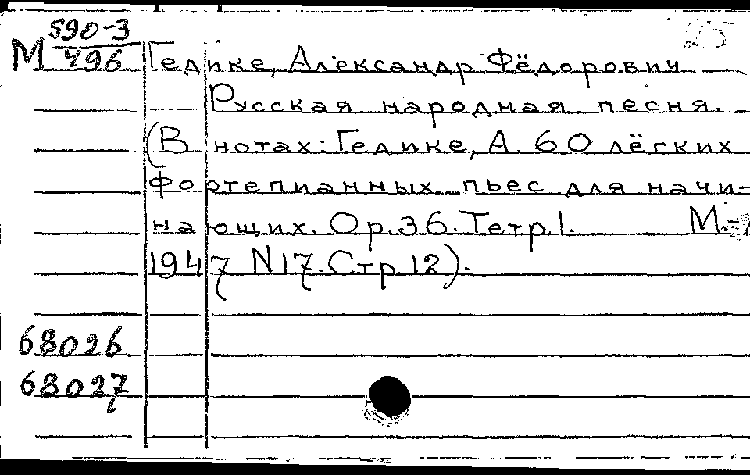 590-3
М 796 Гедике, Александр Фёдорович
Русская народная песня.
(В нотах: Гедике, А. 60 лёгких
фортепианных пьес для начи-
нающих. Op.36. Тетр.1. М.-
1947 N17. Стр.12).
68026
68027